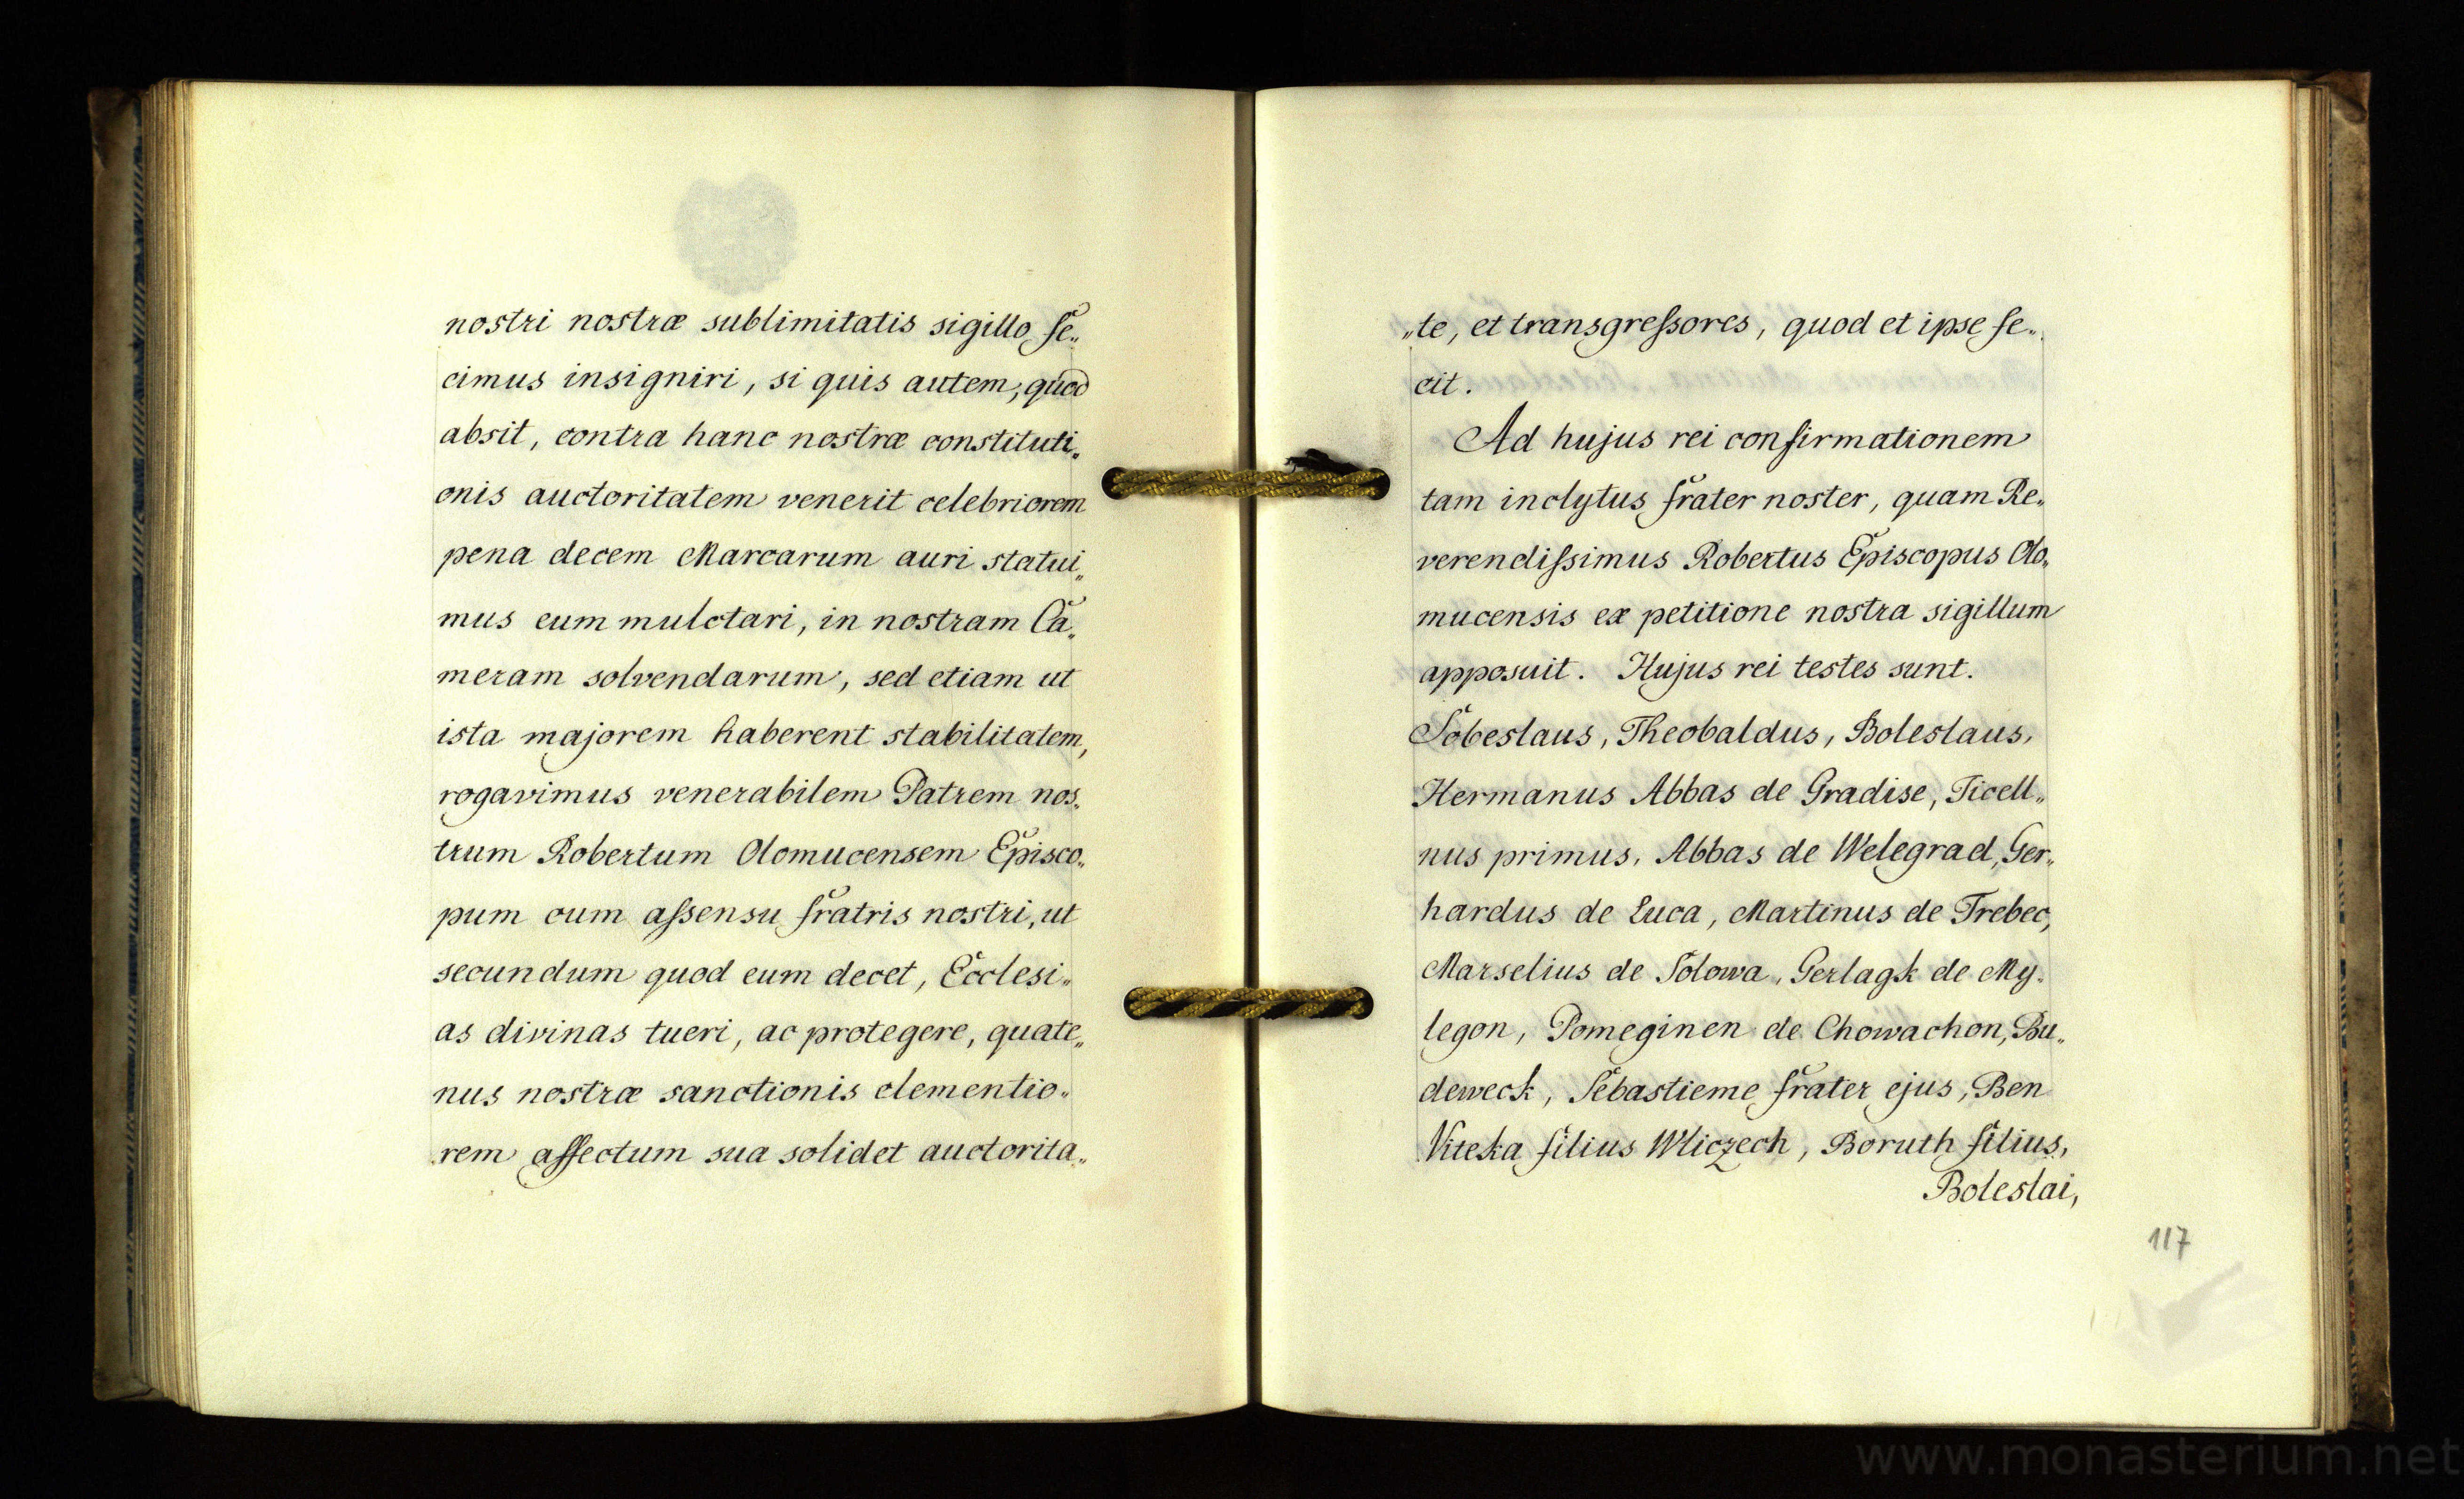 nostri nostræ sublimitatis sigillo fe„
cimus insigniri, si quis autem, quod
absit, contra hanc nostræ constituti„
onis auctoritatem venerit celebriorem
pena decem Marcarum auri statui„
mus eum mulctari, in nostram Ca„
meram solvendarum, sed etiam ut
ista majorem haberent stabilitatem,
rogavimus venerabilem Patrem nos„
trum Robertum Olomucensem Episco„
pum cum aſsensu fratris nostri, ut
secundum quod eum decet, Ecclesi„
as divinas tueri, ac protegere, quate„
nus nostræ sanctionis clementio„
rem affectum sua solidet auctorita„
„te, et transgreſsores, quod et ipse fe„
cit.
Ad hujus rei confirmationem
tam inclytus frater noster, quam Re„
verendiſsimus Robertus Episcopus Olo„
mucensis ex petitione nostra sigillum
apposuit. Hujus rei testes sunt.
Sobeslaus, Theobaldus, Boleslaus,
Hermanus Abbas de Gradise, Ticell„
nus primus, Abbas de Welegrad, Ger„
hardus de Luca, Martinus de Trebec,
Marselius de Solowa, Gerlagk de My„
legon, Pomeginen de Chowachon, Bu„
deweck, Sebastieme frater ejus, Ben
Viteka filius Wliczech, Boruth filius,
Boleslai,
117
www.monasterium.net